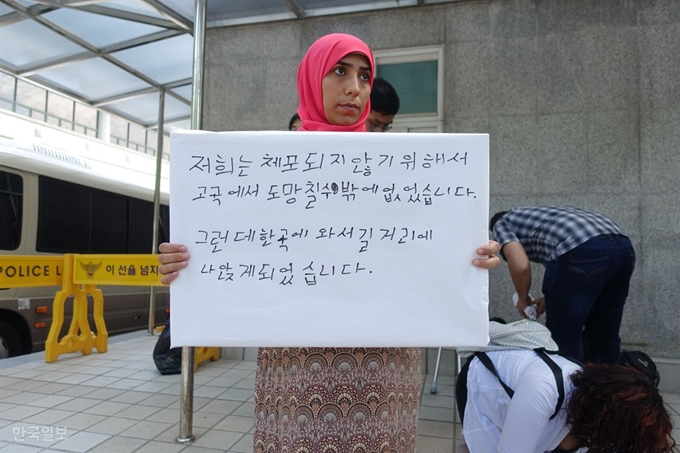 저희는 체포되지 않기 위해서
고국에서 도망칠수밖에 없었습니다.
그런데 한국에 와서 길거리에
나앉게 되었습니다.
POLICE LI
이 선을 넘지
한국일보